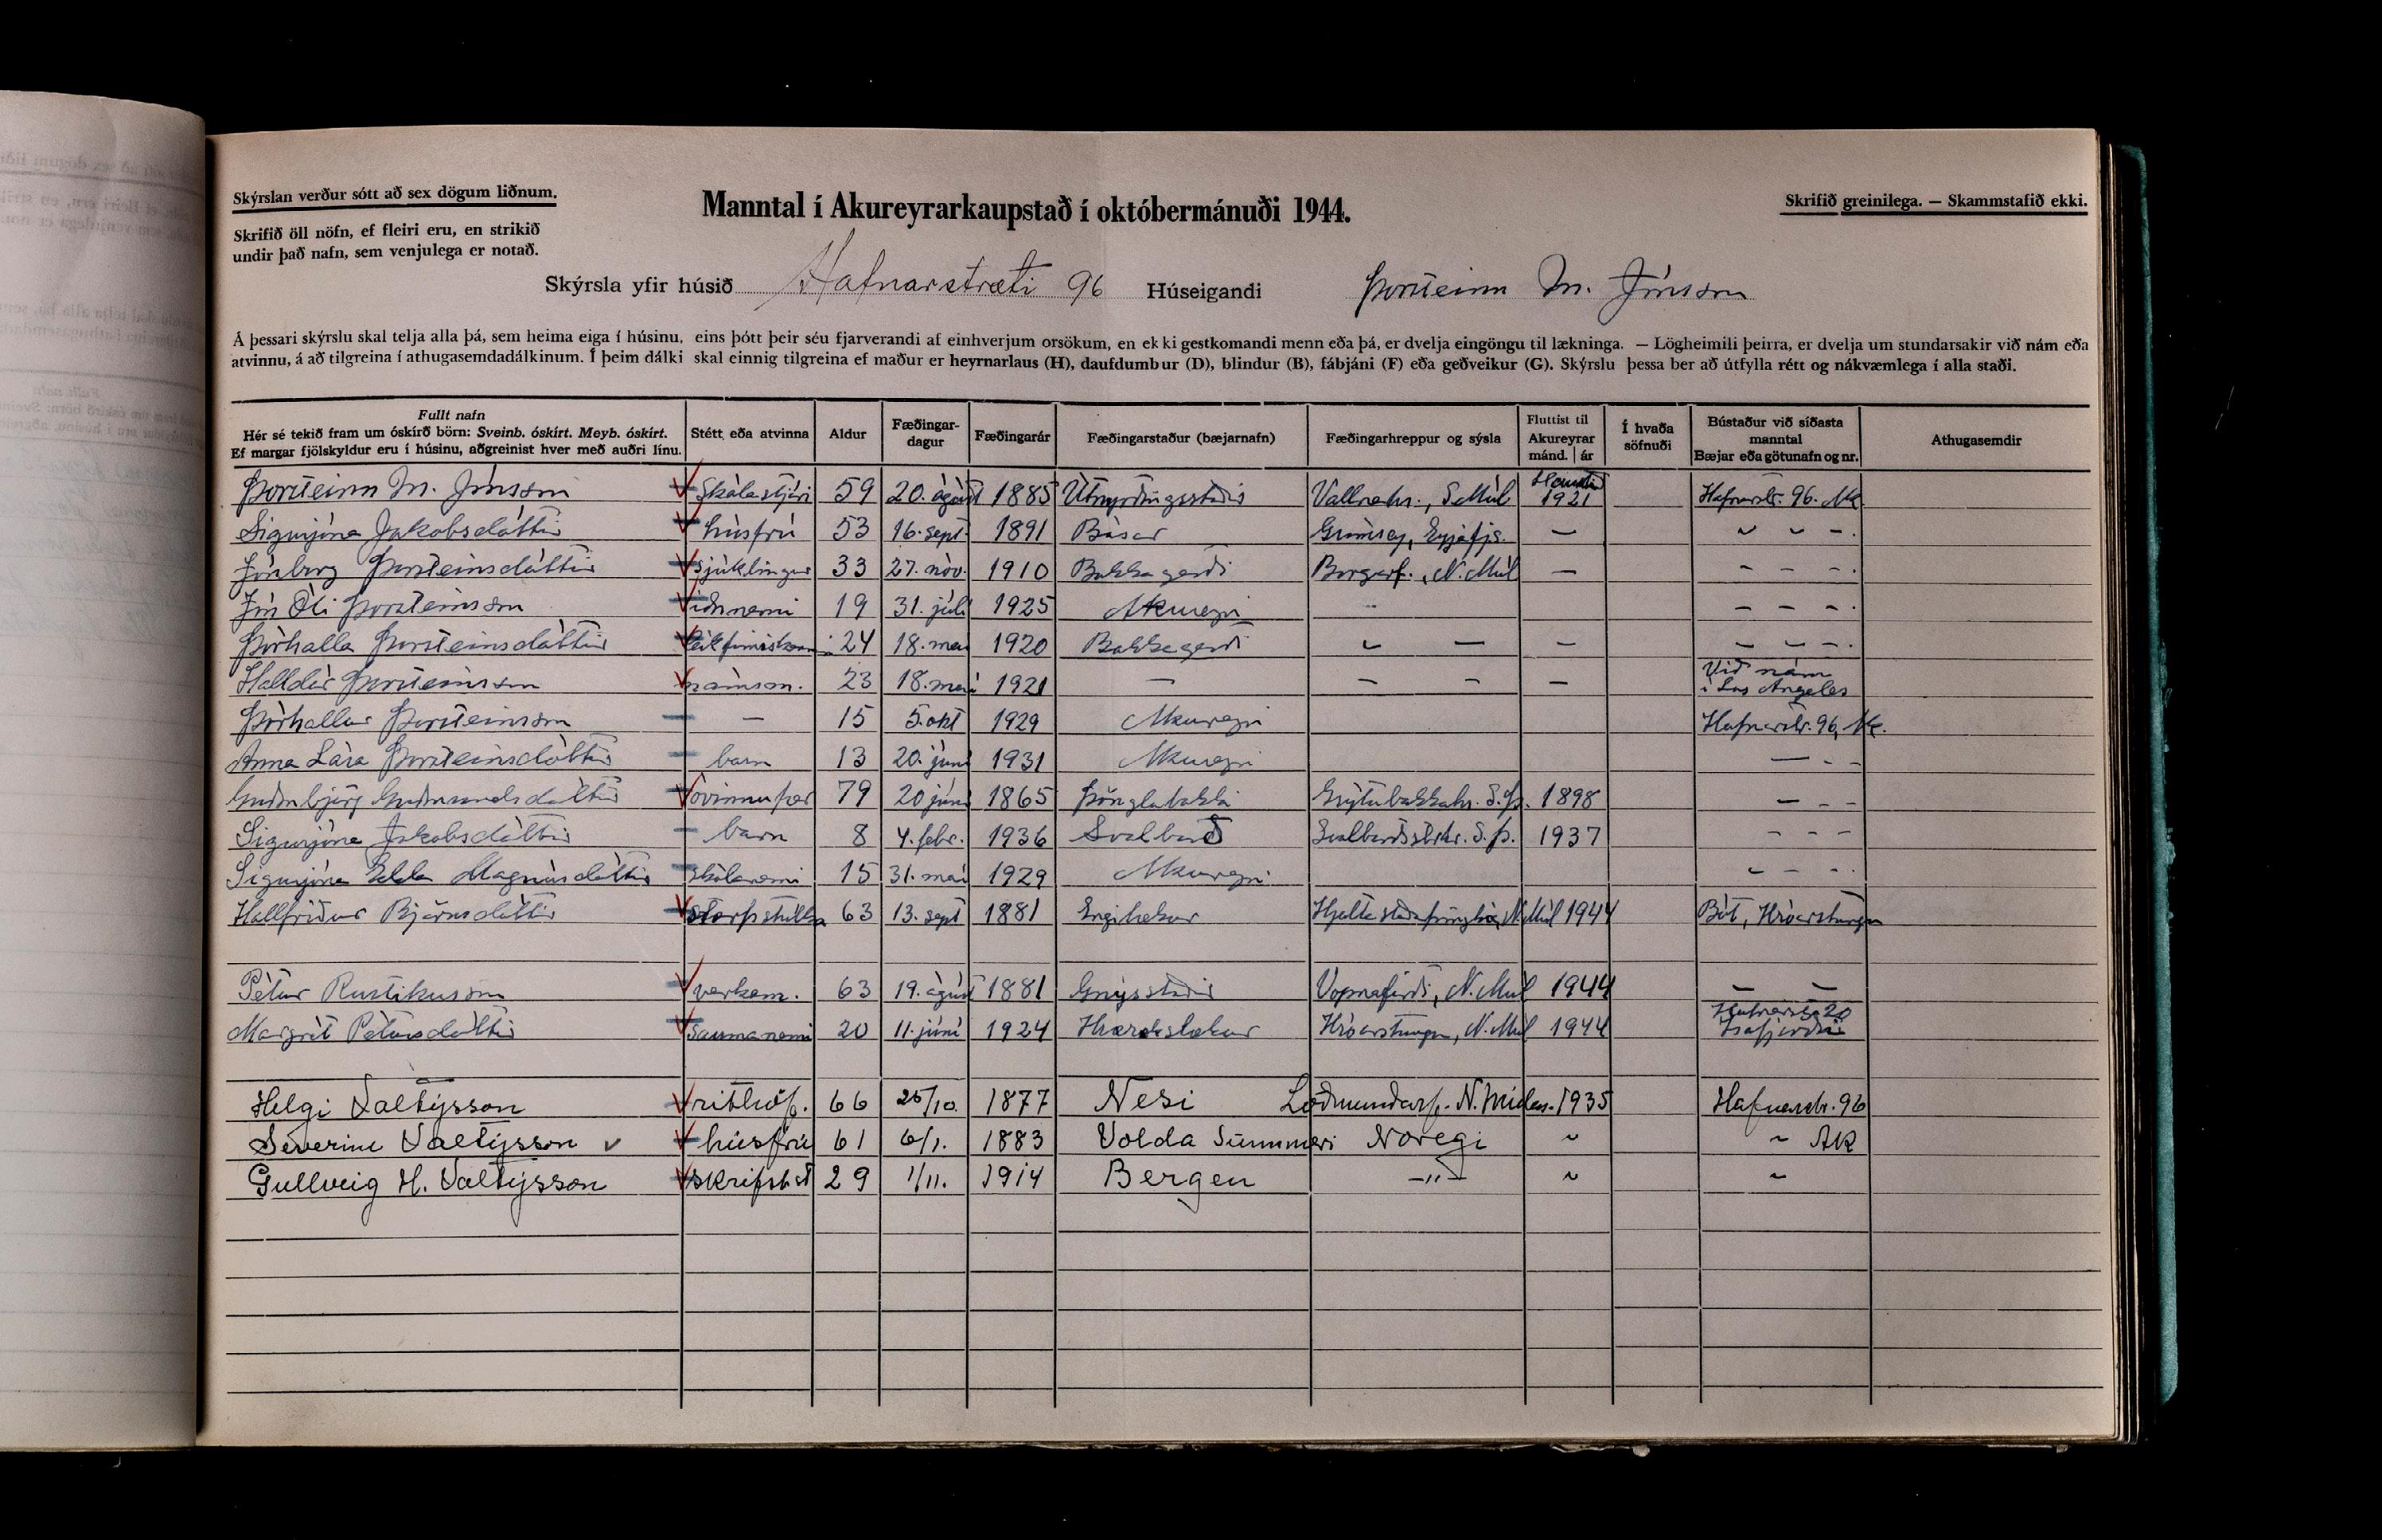 Skýrslan verður sótt að sex dögum liðnum.
Manntal í Akureyrarkaupstað í októbermánuði 1944.
Skrifið greinilega. — Skammstafið ekki.
Skrifið öll nöfn, ef fleiri eru, en strikið
undir það nafn, sem venjulega er notað.
Skýrsla yfir húsið Hafnarstræti 96 Húseigandi Þorsteinn M. Jónsson
Á þessari skýrslu skal telja alla þá, sem heima eiga í húsinu, eins þótt þeir séu fjarverandi af einhverjum orsökum, en ekki gestkomandi menn eða þá, er dvelja eingöngu til lækninga. — Lögheimili þeirra, er dvelja um stundarsakir við nám eða
atvinnu, á að tilgreina í athugasemdadálkinum. Í þeim dálki skal einnig tilgreina ef maður er heyrnarlaus (H), daufdumbur (D), blindur (B), fábjáni (F) eða geðveikur (G). Skýrslu þessa ber að útfylla rétt og nákvæmlega í alla staði.
Fullt nafn
Hér sé tekið fram um óskírð börn: Sveinb. óskírt. Meyb. óskírt.
Ef margar fjölskyldur eru í húsinu, aðgreinist hver með auðri línu.
Stétt eða atvinna
Aldur
Fæðingar-
dagur
Fæðingarár
Fæðingarstaður (bæjarnafn)
Fæðingarhreppur og sýsla
Fluttist til
Akureyrar
mánd. | ár
Í hvaða
söfnuði
Bústaður við síðasta
manntal
Bæjar eða götunafn og nr.
Athugasemdir
Þorsteinn M. Jónsson skólastjóri 59 20. ágúst 1885 Útnyrðingsstaðir Vallnahr., S.Múl 1921 Hafnarstr. 96. Ak
Sigurjóna Jakobsdóttir húsfrú 53 16. sept. 1891 Básar Grímsey, Eyjafjs. — " " -.
Jónborg Þorsteinsdóttir sjúklingur 33 27. nóv. 1910 Bakkagerði Borgarf., N.Múl — - - -.
Jón Óli Þorsteinsson iðnnemi 19 31. júlí 1925 Akureyri - - -.
Þórhalla Þorsteinsdóttir 24 18. maí 1920 Bakkagerði — — — - - -.
Halldór Þorsteinsson námsm. 23 18. maí 1921 — — — — Við nám
í Los Angeles
Þórhallur Þorsteinsson — 15 5. okt 1929 Akureyri Hafnarstr. 96, Ak.
Anna Lára Þorsteinsdóttir barn 13 20. júní 1931 Akureyri — - -
Guðnbjörg Guðmundsdóttir óvinnufær 79 20 júní 1865 Þönglabakki Grýtubakkahr. S.Þ. 1898 - - -
Sigurjóna Jakobsdóttir barn 8 4. febr. 1936 Svalbarð Svalbarðsstrhr. S.Þ. 1937 - - -
Sigurjóna Edda Magnúsdóttir skólanemi 15 31. maí 1929 Akureyri - - -.
Hallfríður Björnsdóttir starfsstúlka 63 13. sept 1881 Engilækur Hjaltastaðaþinghá, N.Múl 1944 Bót, Hróarstungu
Pétur Rustikusson verkam. 63 19. ágúst 1881 Gnýsstaðir Vopnafirði, N.Múl 1944 — —
Margrét Pétursdóttir saumanemi 20 11. júní 1924 Hrærekslækur Hróarstungu, N.Múl 1944 Hafnarstr. 20
Ísafjörður
Helgi Valtýsson rithöf. 66 25/10. 1877 Nesi Loðmundarf. N.Múlas. 1935 Hafnarstr. 96
Severine Valtýsson húsfrú 61 6/1. 1883 Volda Sunnmæri Noregi ~ ~ AK
Gullveig H. Valtýsson skrifst.st 29 1/11. 1914 Bergen —"— ~ ~